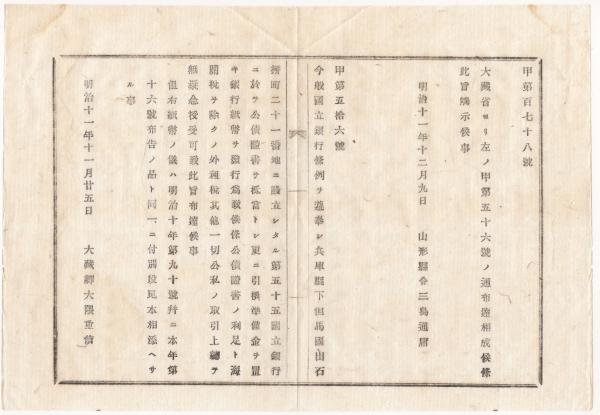 甲第百七十八號
大藏省ヨリ左ノ甲第五十六號ノ通布達相成候條
此旨縣示候事
明治十一年十二月九日　山形縣令三島通庸
甲第五拾六號
今般國立銀行條例ヲ遵奉シ兵庫縣下但馬國出石
町二十一番地ニ設立シタル第五十五國立銀行
ニ於テ公債證書ヲ抵當トシ更ニ引換準備金ヲ置
キ銀行紙幣ヲ發行爲致候條公債證書ノ利足ト海
關稅ヲ除クノ外租稅其他一切公私ノ取引上總テ
無疑念授受可致此旨布達候事
但右紙幣ノ儀ハ明治十年第九十號幷ニ本年第
十六號布告ノ品ト同一ニ付別段見本相添ヘサ
ル事
明治十一年十一月廿五日　大藏卿大隈重信